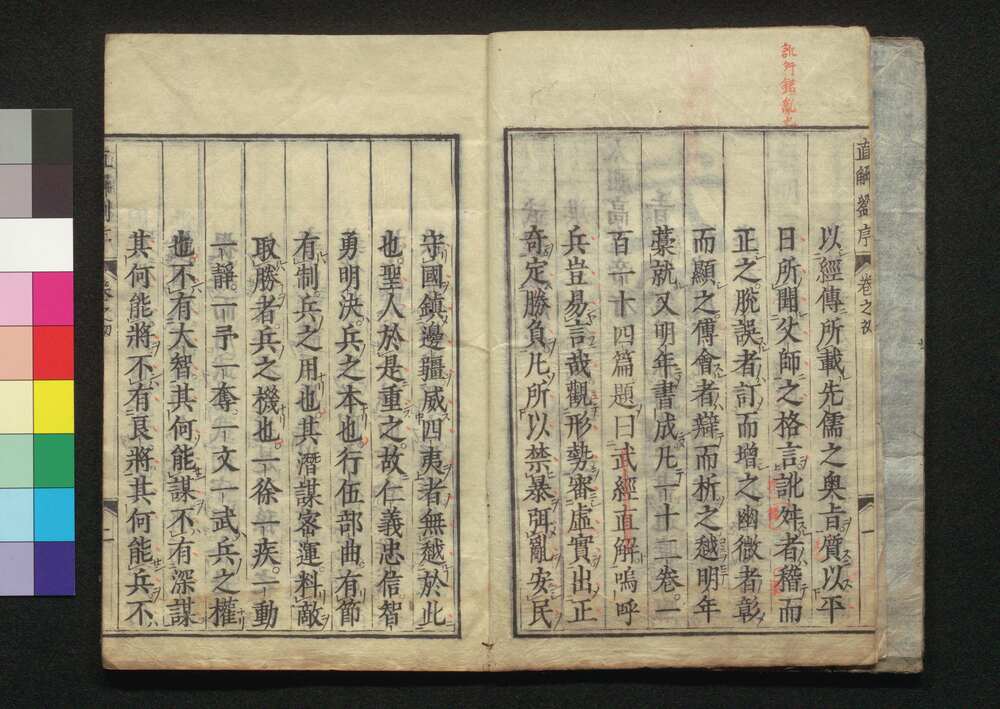 直解 序 卷之初 一
以經傳所載先儒之奧旨質以平
日所聞父師之格言訛舛者稽而
正之脫誤者訂而增之幽微者彰
而顯之傅會者辯而析之越明年
藁就又明年書成凡一十二卷一
百一十四篇題曰武經直解嗚呼
兵豈易言哉觀形勢審虛實出正
奇定勝負凡所以禁暴弭亂安民
守國鎮邊疆威四夷者無越於此
也聖人於是重之故仁義忠信智
勇明決兵之本也行伍部曲有節
有制兵之用也其潛謀密運料敵
取勝者兵之機也一徐一疾一動
一靜一予一奪一文一武兵之權
也不有大智其何能謀不有深謀
其何能將不有良將其何能兵不